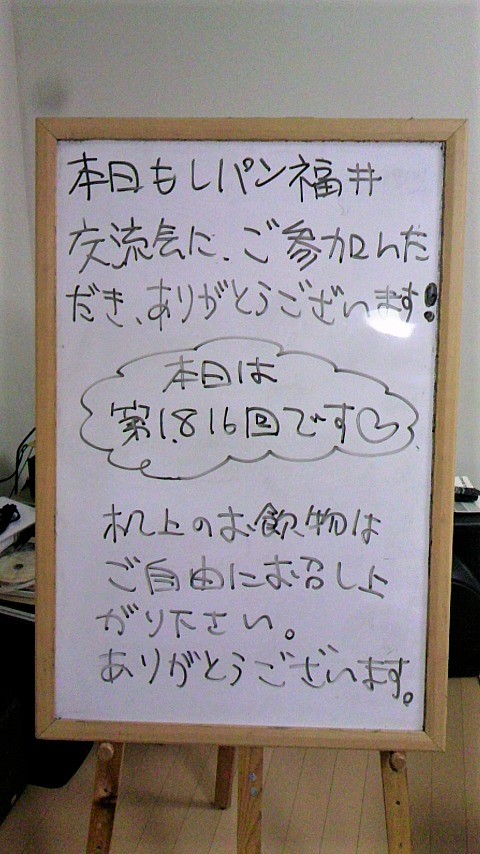 本日もしパン福井
交流会に、ご参加いた
だき、ありがとうございます!
本日は
第1,816回です♡
机上のお飲物は
ご自由にお召し上
がり下さい。
ありがとうございます。